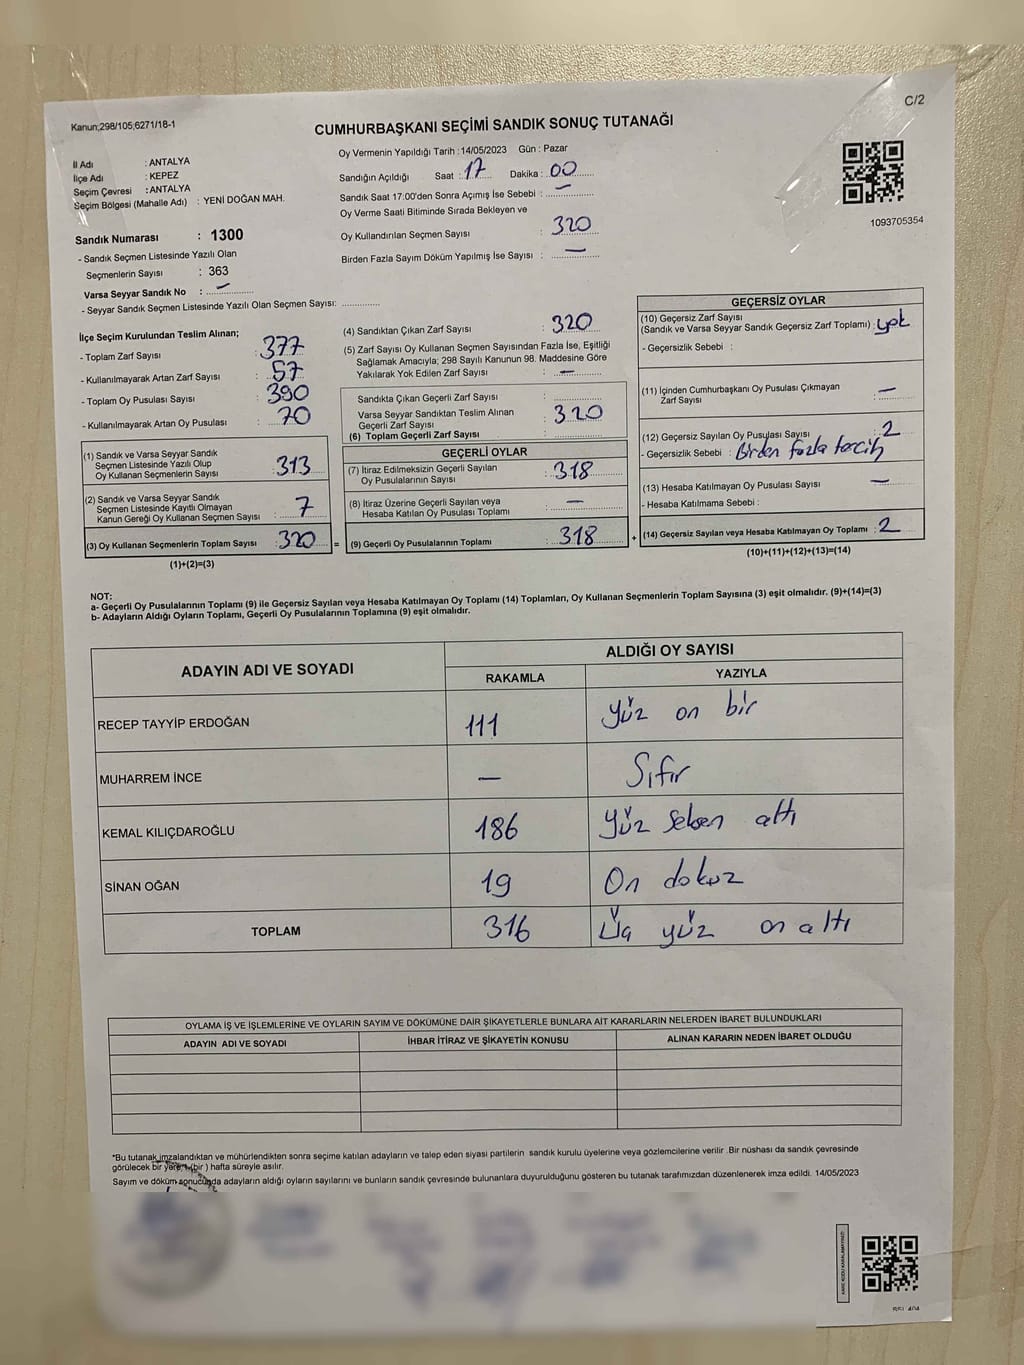 Kanun;298/105;6271/18-1
C/2
CUMHURBAŞKANI SEÇİMİ SANDIK SONUÇ TUTANAĞI
İl Adı : ANTALYA
İlçe Adı : KEPEZ
Seçim Çevresi : ANTALYA
Seçim Bölgesi (Mahalle Adı) : YENİ DOĞAN MAH.
Sandık Numarası : 1300
- Sandık Seçmen Listesinde Yazılı Olan
Seçmenlerin Sayısı : 363
Varsa Seyyar Sandık No : —
- Seyyar Sandık Seçmen Listesinde Yazılı Olan Seçmen Sayısı:
Oy Vermenin Yapıldığı Tarih :14/05/2023 Gün : Pazar
Sandığın Açıldığı Saat : 17 Dakika : 00
Sandık Saat 17:00'den Sonra Açımış İse Sebebi : —
Oy Verme Saati Bitiminde Sırada Bekleyen ve
Oy Kullandırılan Seçmen Sayısı : 320
Birden Fazla Sayım Döküm Yapılmış İse Sayısı : —
1093705354
İlçe Seçim Kurulundan Teslim Alınan;
- Toplam Zarf Sayısı : 377
- Kullanılmayarak Artan Zarf Sayısı : 57
- Toplam Oy Pusulası Sayısı : 390
- Kullanılmayarak Artan Oy Pusulası : 70
(1) Sandık ve Varsa Seyyar Sandık
Seçmen Listesinde Yazılı Olup
Oy Kullanan Seçmenlerin Sayısı : 313
(2) Sandık ve Varsa Seyyar Sandık
Seçmen Listesinde Kayıtlı Olmayan
Kanun Gereği Oy Kullanan Seçmen Sayısı : 7
(3) Oy Kullanan Seçmenlerin Toplam Sayısı : 320 =
(1)+(2)=(3)
(4) Sandıktan Çıkan Zarf Sayısı : 320
(5) Zarf Sayısı Oy Kullanan Seçmen Sayısından Fazla İse, Eşitliği
Sağlamak Amacıyla; 298 Sayılı Kanunun 98. Maddesine Göre
Yakılarak Yok Edilen Zarf Sayısı : —
Sandıkta Çıkan Geçerli Zarf Sayısı :
Varsa Seyyar Sandıktan Teslim Alınan
Geçerli Zarf Sayısı : 320
(6) Toplam Geçerli Zarf Sayısı :
GEÇERLİ OYLAR
(7) İtiraz Edilmeksizin Geçerli Sayılan
Oy Pusulalarının Sayısı : 318
(8) İtiraz Üzerine Geçerli Sayılan veya
Hesaba Katılan Oy Pusulası Toplamı : —
(9) Geçerli Oy Pusulalarının Toplamı : 318 +
GEÇERSİZ OYLAR
(10) Geçersiz Zarf Sayısı
(Sandık ve Varsa Seyyar Sandık Geçersiz Zarf Toplamı) : yok
- Geçersizlik Sebebi :
(11) İçinden Cumhurbaşkanı Oy Pusulası Çıkmayan
Zarf Sayısı : —
(12) Geçersiz Sayılan Oy Pusulası Sayısı : 2
- Geçersizlik Sebebi : Birden fazla tercih
(13) Hesaba Katılmayan Oy Pusulası Sayısı : —
- Hesaba Katılmama Sebebi :
(14) Geçersiz Sayılan veya Hesaba Katılmayan Oy Toplamı : 2
(10)+(11)+(12)+(13)=(14)
NOT:
a- Geçerli Oy Pusulalarının Toplamı (9) ile Geçersiz Sayılan veya Hesaba Katılmayan Oy Toplamı (14) Toplamları, Oy Kullanan Seçmenlerin Toplam Sayısına (3) eşit olmalıdır. (9)+(14)=(3)
b- Adayların Aldığı Oyların Toplamı, Geçerli Oy Pusulalarının Toplamına (9) eşit olmalıdır.
ADAYIN ADI VE SOYADI
ALDIĞI OY SAYISI
RAKAMLA YAZIYLA
RECEP TAYYİP ERDOĞAN 111 yüz on bir
MUHARREM İNCE — Sıfır
KEMAL KILIÇDAROĞLU 186 yüz seksen altı
SİNAN OĞAN 19 On dokuz
TOPLAM 316 Üç yüz on altı
OYLAMA İŞ VE İŞLEMLERİNE VE OYLARIN SAYIM VE DÖKÜMÜNE DAİR ŞİKAYETLERLE BUNLARA AİT KARARLARIN NELERDEN İBARET BULUNDUKLARI
ADAYIN ADI VE SOYADI İHBAR İTİRAZ VE ŞİKAYETİN KONUSU ALINAN KARARIN NEDEN İBARET OLDUĞU
*Bu tutanak imzalandıktan ve mühürlendikten sonra seçime katılan adayların ve talep eden siyasi partilerin sandık kurulu üyelerine veya gözlemcilerine verilir .Bir nüshası da sandık çevresinde
görülecek bir yere, 1 (bir ) hafta süreyle asılır.
Sayım ve döküm sonucunda adayların aldığı oyların sayılarını ve bunların sandık çevresinde bulunanlara duyurulduğunu gösteren bu tutanak tarafımızdan düzenlenerek imza edildi. 14/05/2023